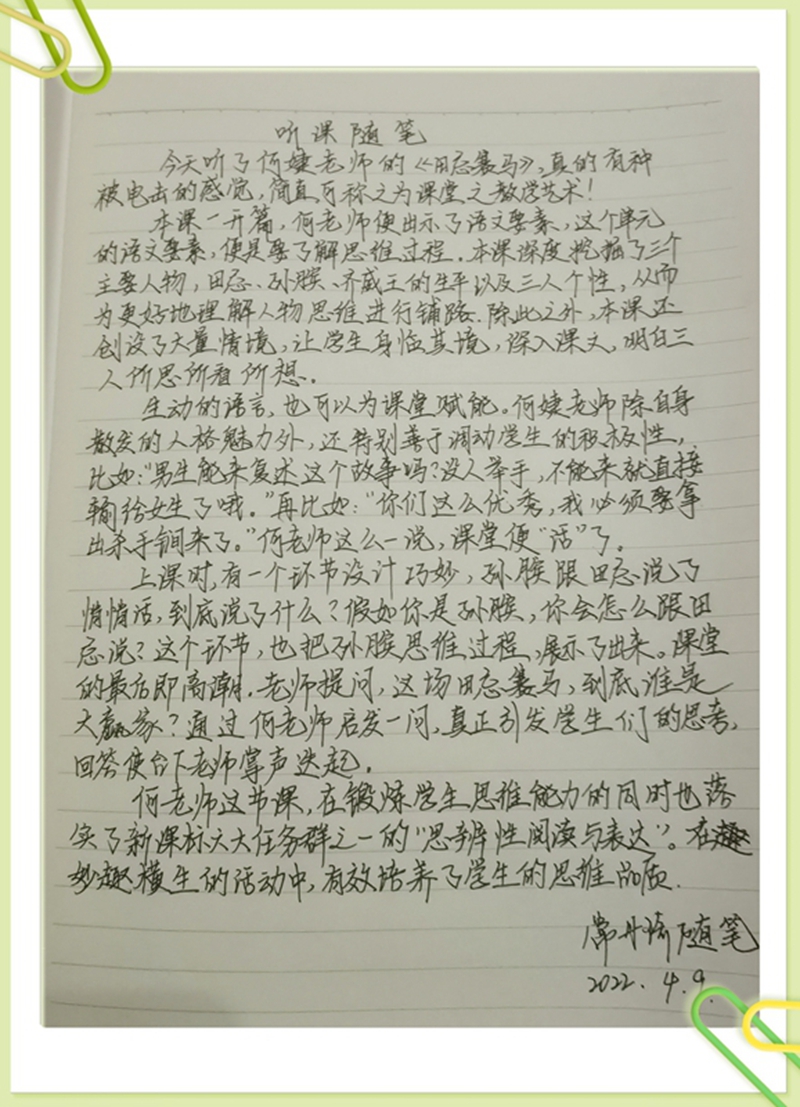 听课随笔
今天听了何婕老师的《田忌赛马》,真的有种
被电击的感觉,简直可称之为课堂之教学艺术!
本课一开篇,何老师便出示了语文要素,这个单元
的语文要素,便是要了解思维过程.本课深度挖掘了三个
主要人物,田忌、孙膑、齐威王的生平以及三人个性,从而
为更好地理解人物思维进行铺路.除此之外,本课还
创设了大量情境,让学生身临其境,深入课文,明白三
人所思所看所想.
生动的语言,也可以为课堂赋能。何婕老师除自身
散发的人格魅力外,还特别善于调动学生的积极性,
比如:“男生能来复述这个故事吗?没人举手,不能来就直接
输给女生了哦。”再比如:“你们这么优秀,我必须要拿
出杀手锏来了。”何老师这么一说,课堂便“活”了。
上课时,有一个环节设计巧妙,孙膑跟田忌说了
悄悄话,到底说了什么?假如你是孙膑,你会怎么跟田
忌说?这个环节,也把孙膑思维过程,展示了出来。课堂
的最后即高潮.老师提问,这场田忌赛马,到底谁是
大赢家?通过何老师启发一问,真正引发学生们的思考,
回答使台下老师掌声迭起.
何老师这节课,在锻炼学生思维能力的同时也落
实了新课标六大任务群之一的“思辨性阅读与表达”。在
妙趣横生的活动中,有效培养了学生的思维品质.
常丹 随笔
2022.4.9.